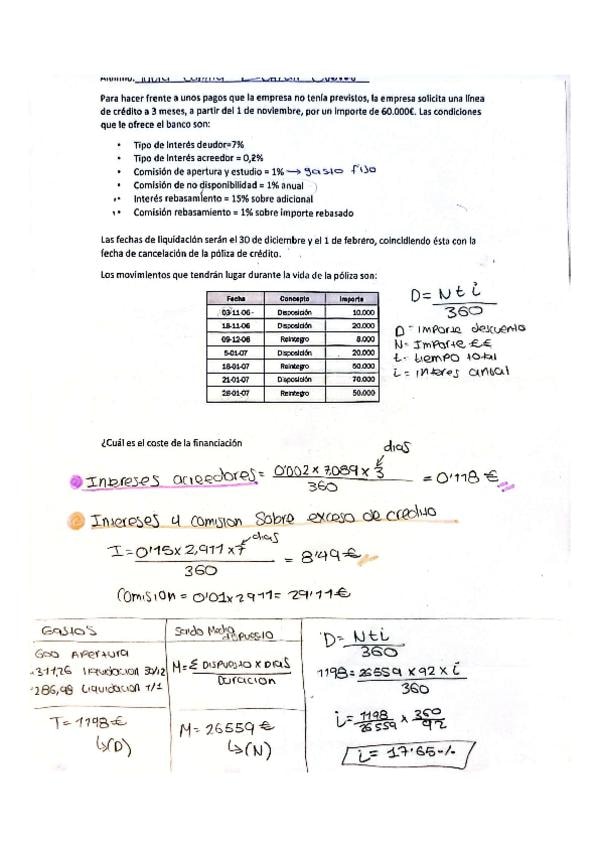 Para hacer frente a unos pagos que la empresa no tenía previstos, la empresa solicita una línea
de crédito a 3 meses, a partir del 1 de noviembre, por un importe de 60.000€. Las condiciones
que le ofrece el banco son:
• Tipo de Interés deudor=7%
• Tipo de Interés acreedor = 0,2%
• Comisión de apertura y estudio = 1% → gasto fijo
• Comisión de no disponibilidad = 1% anual
• Interés rebasamiento = 15% sobre adicional
• Comisión rebasamiento = 1% sobre importe rebasado
Las fechas de liquidación serán el 30 de diciembre y el 1 de febrero, coincidiendo ésta con la
fecha de cancelación de la póliza de crédito.
Los movimientos que tendrán lugar durante la vida de la póliza son:
Fecha Concepto Importe
03-11-06 Disposición 10.000
18-11-06 Disposición 20.000
09-12-06 Reintegro 8.000
5-01-07 Disposición 20.000
18-01-07 Reintegro
21-01-07 Disposición 70.000
28-01-07 Reintegro 50.000
D = N t i
360
D = Importe descuento
N = Importe €€
t = tiempo total
i = interes anual
¿Cuál es el coste de la financiación
dias
Intereses acreedores = 0'002 x 7.089 x 3 = 0'118 €
360
Intereses y comision sobre exceso de credito
dias
I = 0'15 x 2,911 x 7 = 8'49 €
360
Comision = 0'01 x 2911 = 29'11 €
GASTOS
600 Apertura
311,26 liquidacion 30/12
286,98 liquidacion 1/1
T = 1198 €
↳ (D)
Saldo Medio Dispuesto
M = Σ Dispuesto x Dias
Duracion
M = 26559 €
↳ (N)
D = Nti
360
1198 = 26559 x 92 x i
360
i = 1198 x 360
26559 92
i = 17'65 %